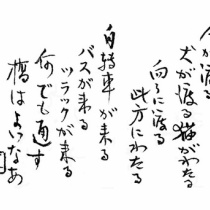 犬が渡る猫がわたる
向うに渡る
此方にわたる
自転車が来る
バスが来る
トラックが来る
何でも通す
橋はよいなあ